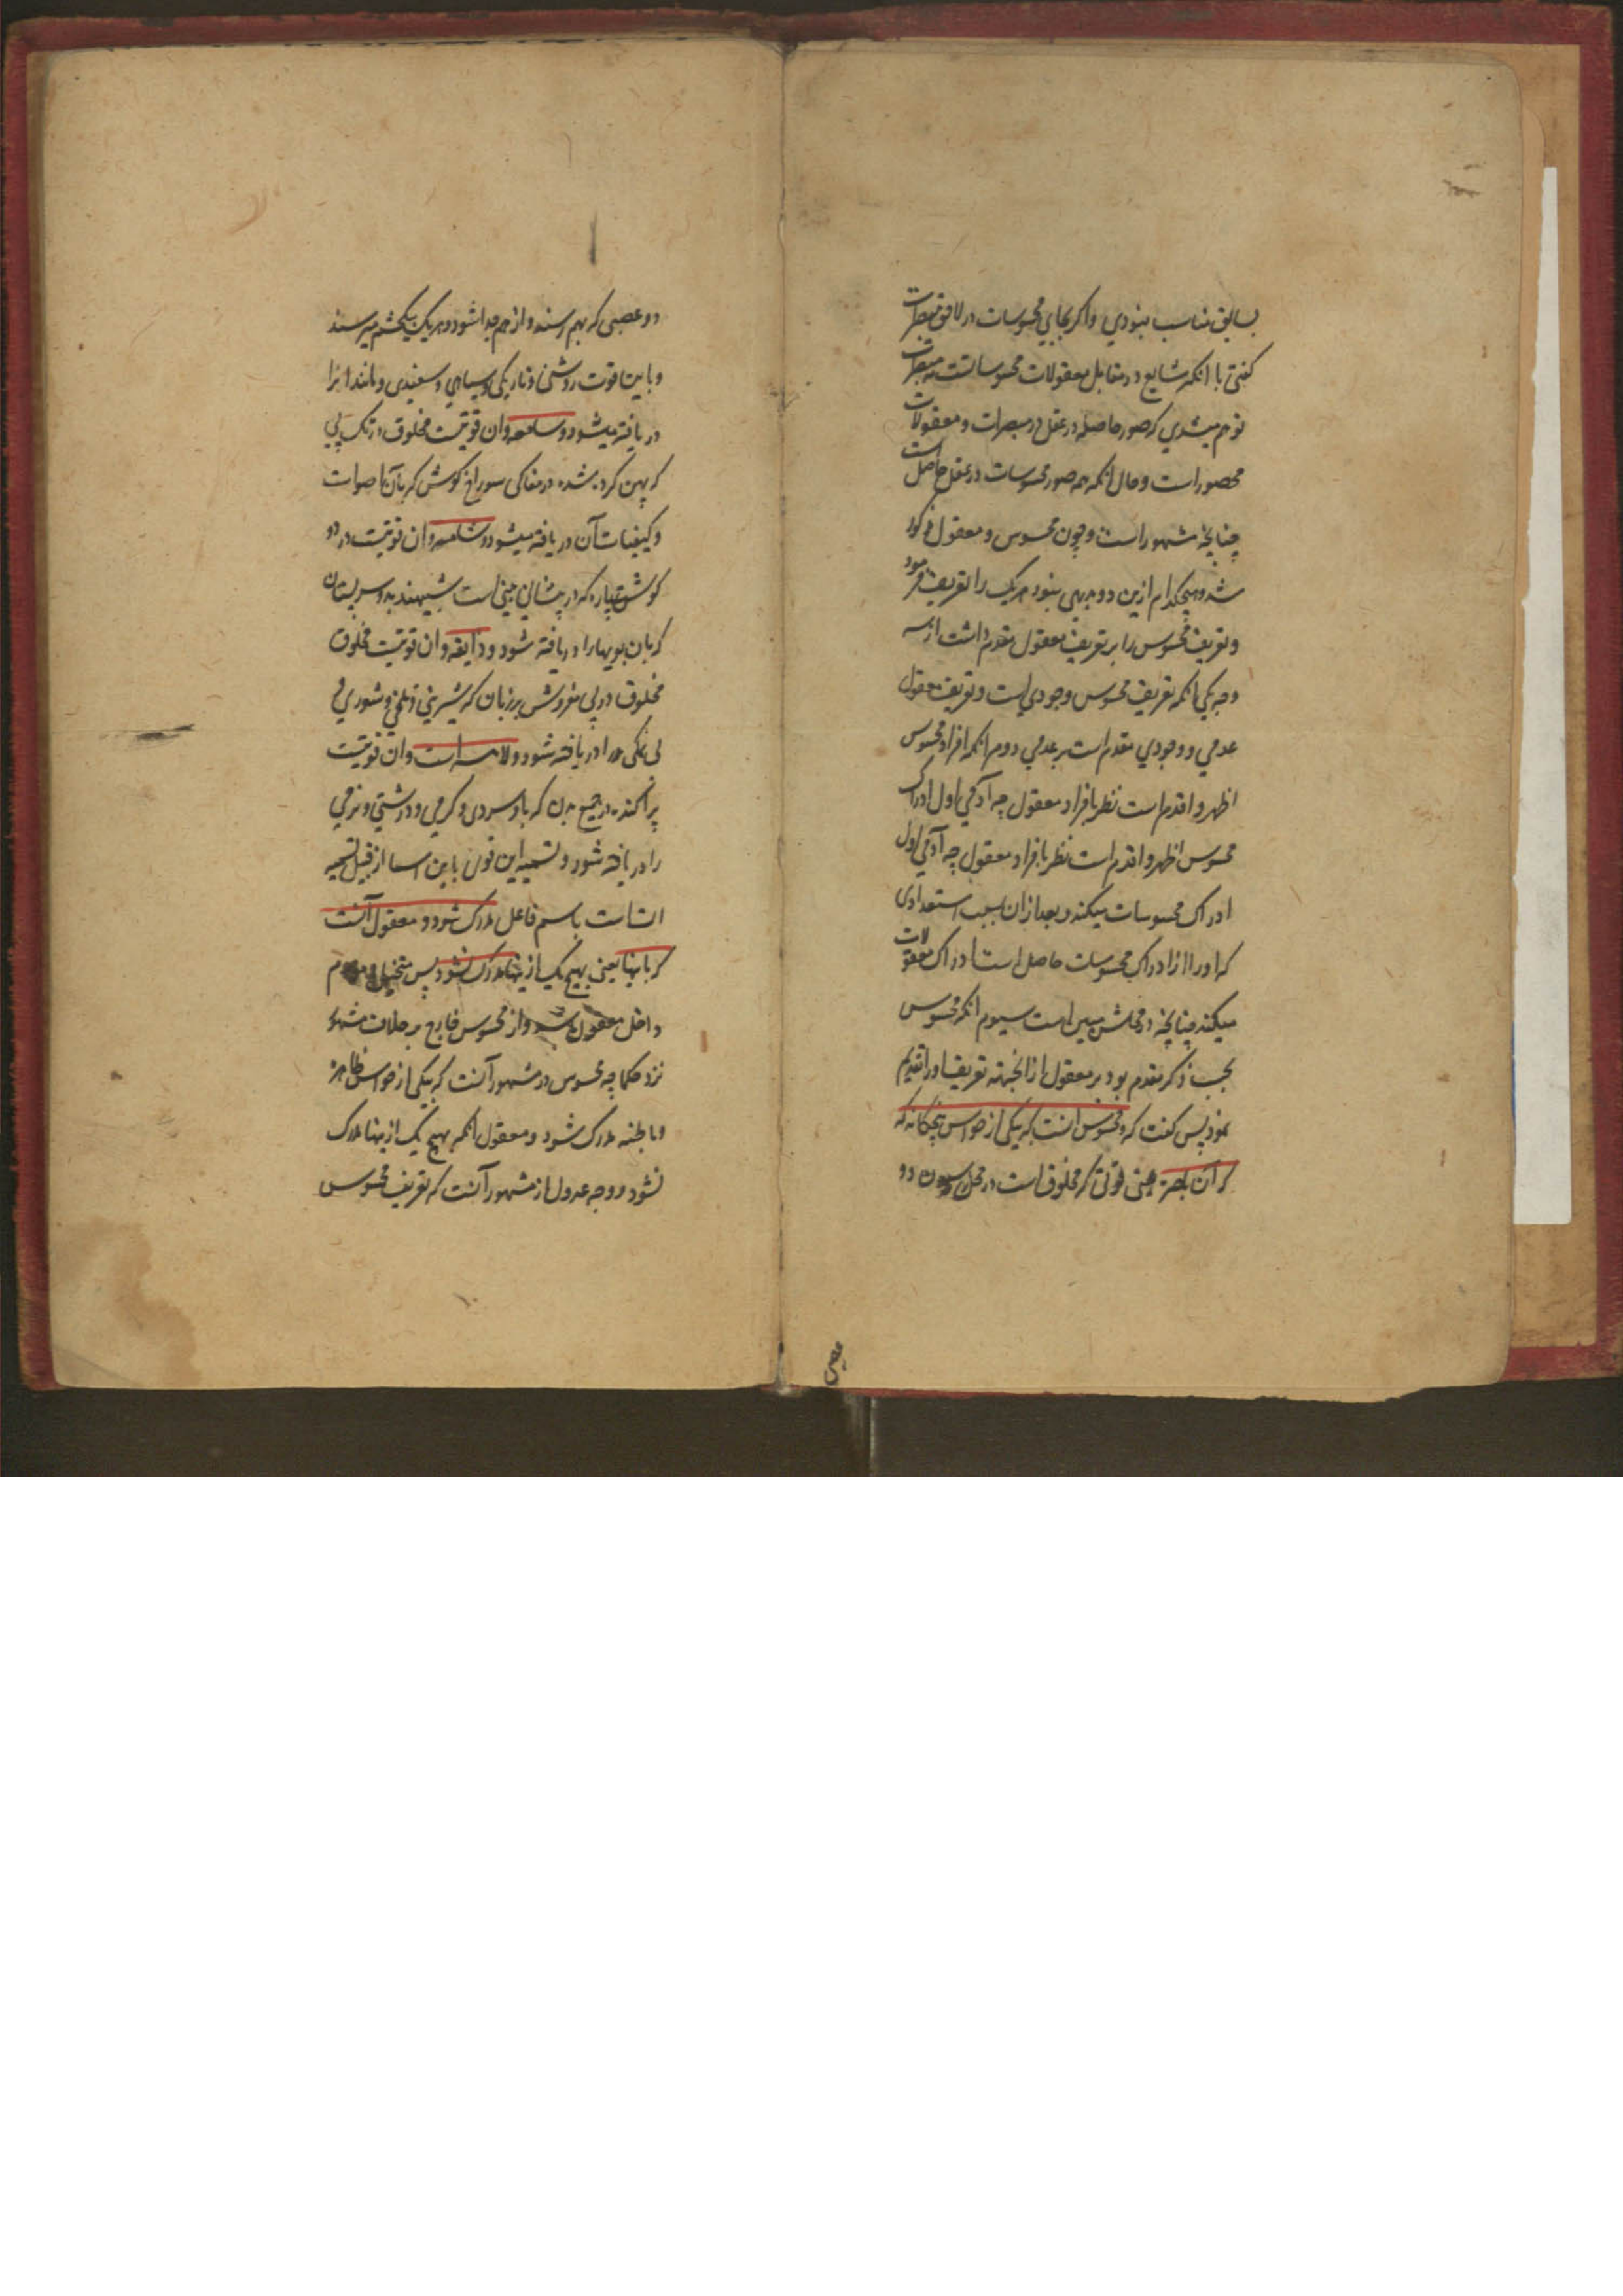 بسابق مناسب نبودي واكر بجاي محسوسات در لاحق مبصرات
كفتى با انكه شايع در مقابل معقولات محسوسات است نه مبصرات
توهم ميشدي كه صور حاصله در عقل در مبصرات و معقولات
محصور است وحال انكه همه صور محسوسات در عقل حاصل است
چنانچه مشهور است وچون محسوس و معقول مذكور
شد وهيچكدام ازين دو بديهى نبود هريك را تعريف فرمود
وتعريف محسوس را بر تعريف معقول مقدم داشت از سه
وجه يكي انكه تعريف محسوس وجودي است وتعريف معقول
عدمي و وجودي مقدم است بر عدمي دوم انكه افراد محسوس
اظهر و اقدم است نظر بافراد معقول چه آدمي اول ادراك
محسوس اظهر و اقدم است نظر بافراد معقول چه آدمي اول
ادراك محسوسات ميكند و بعد ازان بسبب استعدادى
كه اورا از ادراك محسوسات حاصل است ادراك معقولات
ميكند چنانچه در محلش مبين است سيوم انكه محسوس
بحسب ذكر مقدم بود بر معقول ازانجهته تعريف اورا تقديم
نمود پس كفت كه ومحسوس انست كه بيكى از حواس پنجكانه كه
كه آن باصره يعنى قوتى كه مخلوق است در محل دو
دو عصبى كه بهم رسند و از هم جدا شود و هريك بيكچشم ميرسند
و باين قوت روشنى و تاريكى و سياهي و سفيدى و مانند انرا
دريافته ميشود و سامعه وان قوتيست مخلوق در تنك پي
كه پهن كرده شده در مغاكى سوراخ كوش كه بآن اصوات
و كيفيات آن دريافته ميشود و شامه وان قوتيست در دو
كوشت پاره كه در پيشانى است شبيهند بدو سر پستان
كه بان بويها را دريافته شود و ذايقه وان قوتيست مخلوق
مخلوق در پي مفروش بر زبان كه شيريني و تلخي و شوري و
بى نمكى را دريافته شود و لامسه است وان قوتيست
پراكنده در جميع بدن كه باو سردى و كرمي و درشتي و نرمي
را دريافته شود و تسميه اين قوى باين اسما از قبيل تسميه
است باسم فاعل مدرك شود و معقول آنست
كه باينها يعنى بهيچ يك از ينها مدرك نشود پس متخيل و موهوم
داخل معقول شد واز محسوس خارج بر خلاف مشهور
نزد حكما چه محسوس در مشهور آنست كه بيكى از حواس ظاهره
و باطنه مدرك شود و معقول انكه بهيچ يك از ينها مدرك
نشود و وجه عدول از مشهور آنست كه تعريف محسوس